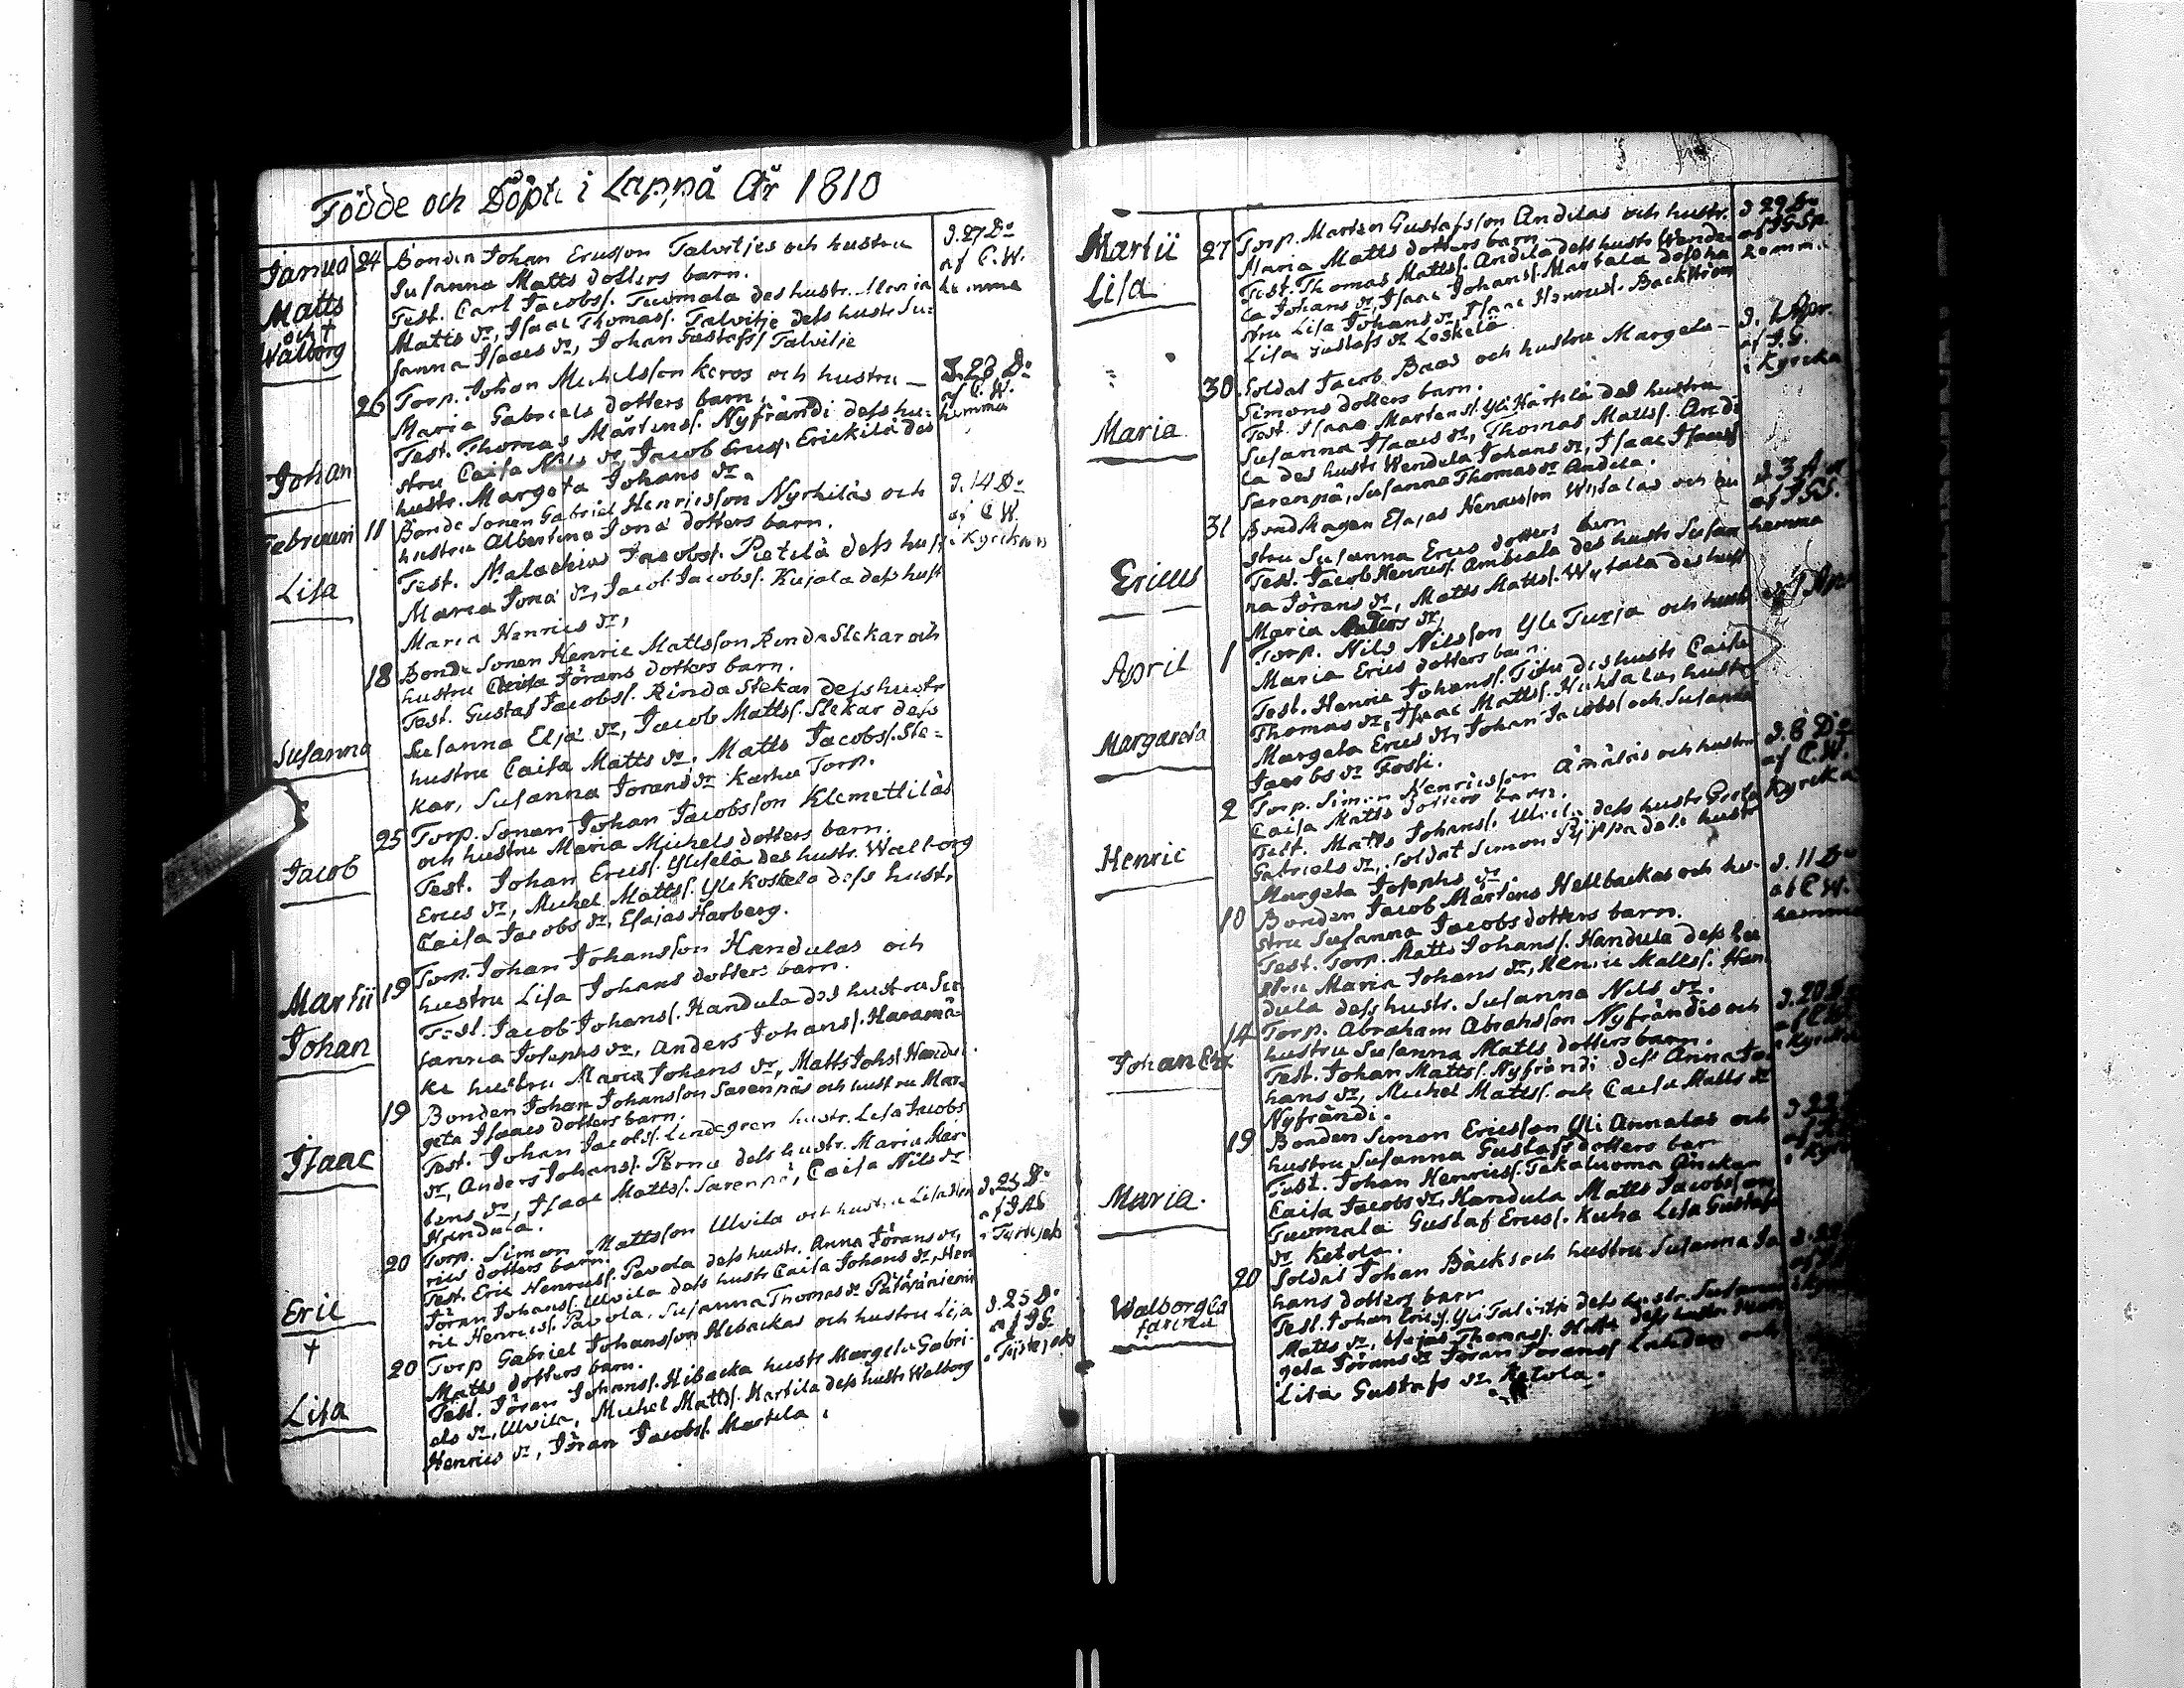 Födde och Döpte i Lappå År 1810
Janua 24 Bonden Johan Ericsson Talvitjes och hustru d. 27 Do
Matts Susanna Matts dotters barn. af C.W.
och † Test. Carl Jacobss. Tuomala des hustr. Maria hemma
Walborg Matts dr, Isaac Thomass. Talvitje dess hustr Su-
sanna Isaacs dr, Johan Gustafss. Talvitje
26 Torp. Johan Michelsson Keros och hustru d. 28 Do
Maria Gabriels dotters barn. af C.W.
Test. Thomas Mårtenss. Nyfrändi dess hu- hemma
stru Caisa Nils dr, Jacob Ericss. Erickilä des
Johan hustr. Margeta Johans dr.
Februari 11 Bonde Sonen Gabriel Henricsson Nyrhiläs och d. 14 Do
hustru Albertina Jona dotters barn. af C.W.
Test. Malachias Jacobss. Pietilä dess hust i Kyrckan
Lisa Maria Jona dr, Jacob Jacobss. Kujala dess hust
Maria Henrics dr,
18 Bonde Sonen Henric Mattsson Rinda Stekar och
hustru Caisa Jörans dotters barn.
Test. Gustaf Jacobss. Rinda Stekar dess hustr
Susanna Susanna Elja dr, Jacob Mattss. Stekar dess
hustru Caisa Matts dr, Matts Jacobss. Ste-
kar, Susanna Jörans dr Karhu Torp.
25 Torp. Sonen Johan Jacobsson Klemettiläs
och hustru Maria Michels dotters barn.
Jacob Test. Johan Ericss. Yliselä des hustr. Walborg
Erics dr, Michel Mattss. Yli Koskela dess hust,
Caisa Jacobs dr, Esajas Harberg.
Martii 19 Torp. Johan Johansson Handulas och
hustru Lisa Johans dotters barn.
Johan Test. Jacob Johanss. Handula des hustru Su
sanna Josephs dr, Anders Johanss. Haramä-
ki hustru Maria Johans dr, Matts Johs Handu
19 Bonden Johan Johansson Sarenpäs och hustru Mar-
geta Isaacs dotters barn.
Isaac Test. Johan Jacobss. Lindegren hustr. Lisa Jacobs
dr, Anders Johanss. Pernu dess hustr. Maria Mår
tens dr, Isaac Mattss. Sarenpä, Caisa Nils dr
Handula.
20 Torp. Simon Mattsson Ulvila och hustru Lisa Hen d. 25 Do
rics dotters barn.
Test. Eric Henricss. Pavola dess hustr. Anna Jörans dr,
Eric Jöran Johanss. Ulvila dess hustr Caisa Johans dr, Hen
† ric Henricss. Pavola, Susanna Thomas dr
20 Torp Gabriel Johansson Hibackas och hustru Lisa d. 25 Do
Matts dotters barn. af JG
Lisa Test. Jöran Johanss. Hibacka hustr Margeta Gabri-
els dr, Ulvila, Michel Mattss. Martila dess hustr Walborg
Henrics dr, Jöran Jacobss. Martila.
Martii 27 Torp. Marten Gustafsson Andilas och hustr. d. 29 Do
Maria Matts dotters barn
Lisa Test. Thomas Mattss. Andila dess hustr Wende- hemma
la Johans dr, Isaac Johanss. Martala dess hu
stru Lisa Johans dr, Isaac Henricss. Backström
Lisa Gustafs dr Loskelä
30 Soldat Jacob Baas och hustru Margeta d. 1 Apr.
Simons dotters barn. af J.G.
Maria Test. Isaac Martenss. Yli Härsilä des hustru i Kyrcka
Susanna Isaacs dr, Thomas Mattss. Andi
la des hustr Wendela Johans dr, Isaac Isaacss
Sarenpä, Susanna Thomas dr Andila.
31 Bond Magen Esajas Henricsson Wijtalas och hu
Ericus stru Susanna Erics dotters barn hemma
Test. Jacob Henricss. Ambrala des hustr Susan
na Jörans dr, Matts Mattss. Wytala des hust
Maria dr,
April 1 Torp. Nils Nilsson Yli Turja och hust
Maria Erics dotters barn.
Test. Henric Johanss. des hustr Caisa
Margareta Thomas dr, Isaac Mattss. Huhtala, hustr
Margeta Erics dr, Johan Jacobss och Susanna
Jacobs dr Fossi.
2 Torp. Simon Henricsson Ämäläs och hustru d. 8 Do
Caisa Matts dotters barn. af C.W.
Henric Test. Matts Johanss. dess hustr Greta Kyrcka
Gabriels dr, Soldat Simon Pijppa dess hustr
Margeta Josephs dr.
10 Bonden Jacob Mårtens Hellbackas och hu- d. 11 Do
stru Susanna Jacobs dotters barn. af C.W.
Test. Torp. Matts Johanss. Handula dess hu hemma
stru Maria Johans dr, Henric Mattss. Han
dula dess hustr. Susanna Nils dr.
14 Torp. Abraham Abrahsson Nyfrändis och d. 20
hustru Susanna Matts dotters barn.
Johan Test. Johan Mattss. Nyfrändi dess Anna Jo
hans dr, Michel Mattss. och Caisa Matts dr
Nyfrändi.
19 Bonden Simon Ericsson Yli Annalas och d. 22
hustru Susanna Gustafs dotters barn
Maria. Test. Johan Henricss. Takaluoma Änckan
Caisa Jacobs dr, Handula Matts Jacobsson
Tuomala Gustaf Ericss. Kuha Lisa Gustafs
dr Ketola.
20 Soldat Johan Bäcks och hustru Susanna Jo
hans dotters barn
Walborg Ca Test. Johan Ericss. Yli Talvitje dess hustr. Susanna
tarina Matts dr, Esajas Thomass. dess hustr Mar
geta Jörans dr Jöran Joranss Lahden och
Lisa Gustafs dr Ketola.